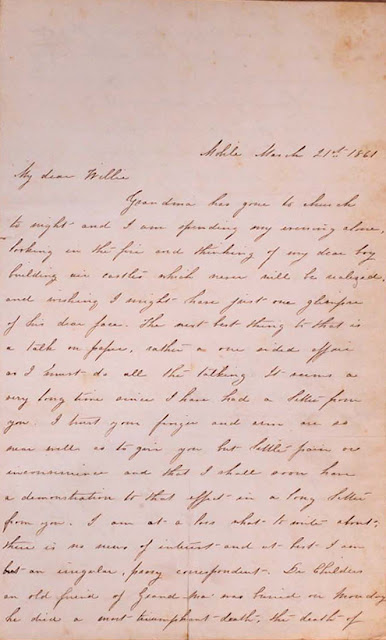 Mobile March 21st 1861
My dear Willie
Grandma has gone to church
to night and I am spending my evening alone,
looking in the fire and thinking of my dear boy
building air castles which never will be realized,
and wishing I might have just one glimpse
of his dear face. The next best thing to that is
a talk on paper, rather a one sided affair
as I must do all the talking It seems a
very long time since I have had a letter from
you. I trust your finger and arm are so
near well as to give you but little pain or
inconvenience and that I shall soon have
a demonstration to that effect in a long letter
from you. I am at a loss what to write about,
there is no news of interest and at best I am
but an irregular, correspondent. Dr Childers
an old friend of Grand Ma was buried on Monday
he died a most triumphant death, the death of